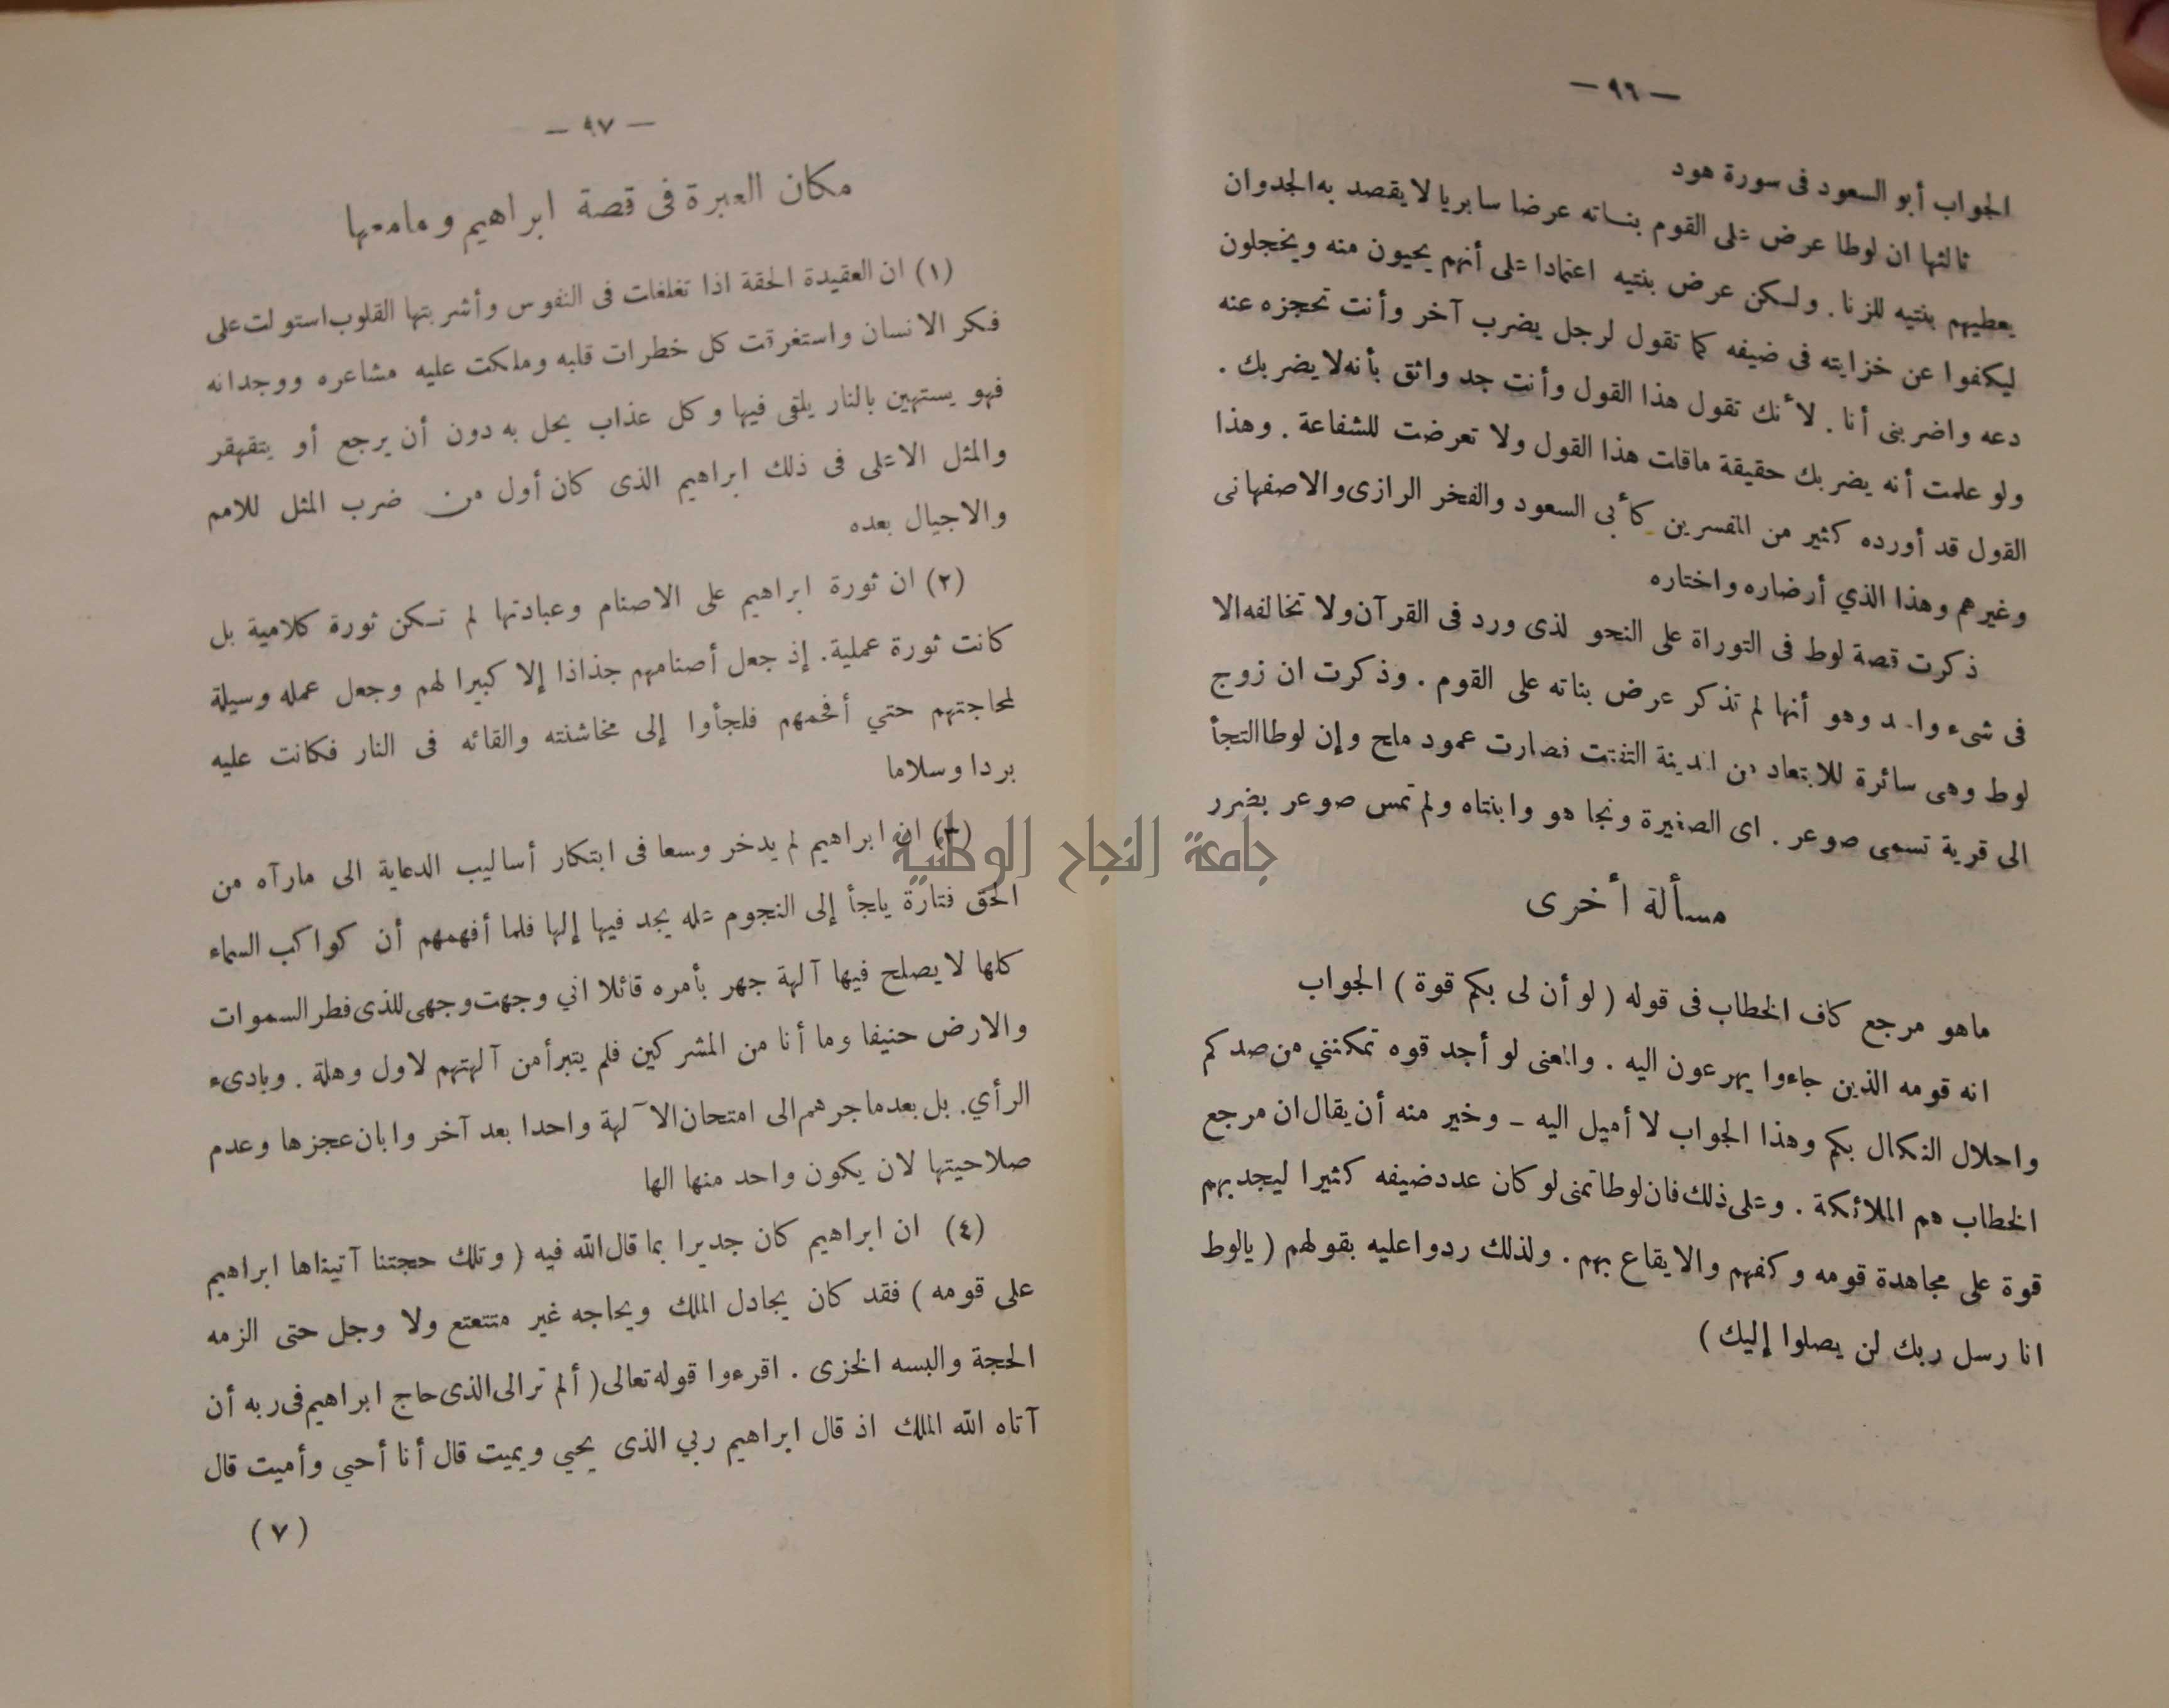 — ٩٦ —
الجواب أبو السعود فى سورة هود
ثالثها ان لوطا عرض على القوم بناته عرضا سابريا لا يقصد به الجدوان
يعطيهم بنتيه للزنا . ولكن عرض بنتيه اعتمادا على أنهم يحيون منه ويخجلون
ليكفوا عن خزايته فى ضيفه كما تقول لرجل يضرب آخر وأنت تحجزه عنه
دعه واضربنى أنا . لأنك تقول هذا القول وأنت جد واثق بأنه لا يضربك .
ولو علمت أنه يضربك حقيقة ماقلت هذا القول ولا تعرضت للشفاعة . وهذا
القول قد أورده كثير من المفسرين كأبى السعود والفخر الرازى والاصفهانى
وغيرهم وهذا الذي أرضاره واختاره
ذكرت قصة لوط فى التوراة على النحو لذى ورد فى القرآن ولا تخالفه الا
فى شىء واحد وهو أنها لم تذكر عرض بناته على القوم . وذكرت ان زوج
لوط وهى سائرة للابتعاد من المدينة التفتت فصارت عمود ملح وإن لوطا التجأ
الى قرية تسمى صوعر . اى الصغيرة ونجا هو وابنتاه ولم تمس صوعر بضرر
مسألة أخرى
ماهو مرجع كاف الخطاب فى قوله ( لو أن لى بكم قوة ) الجواب
انه قومه الذين جاءوا يهرعون اليه . والمعنى لو أجد قوه تمكننى من صدكم
واحلال النكال بكم وهذا الجواب لا أميل اليه - وخير منه أن يقال ان مرجع
الخطاب هم الملائكة . وعلى ذلك فان لوطا تمنى لو كان عدد ضيفه كثيرا ليجد بهم
قوة على مجاهدة قومه وكفهم والايقاع بهم . ولذلك ردوا عليه بقولهم ( يالوط
انا رسل ربك لن يصلوا إليك )
— ٩٧ —
مكان العبرة فى قصة ابراهيم ومامعها
(١) ان العقيدة الحقة اذا تغلغلت فى النفوس وأشربتها القلوب استولت على
فكر الانسان واستغرقت كل خطرات قلبه وملكت عليه مشاعره ووجدانه
فهو يستهين بالنار يلقى فيها وكل عذاب يحل به دون أن يرجع أو يتقهقر
والمثل الاعلى فى ذلك ابراهيم الذى كان أول من ضرب المثل للامم
والاجيال بعده
(٢) ان ثورة ابراهيم على الاصنام وعبادتها لم تكن ثورة كلامية بل
كانت ثورة عملية . إذ جعل أصنامهم جذاذا إلا كبيرا لهم وجعل عمله وسيلة
لمحاجتهم حتي أفحمهم فلجأوا إلى مخاشنته والقائه فى النار فكانت عليه
بردا وسلاما
(٣) ان ابراهيم لم يدخر وسعا فى ابتكار أساليب الدعاية الى مارآه من
الحق فتارة يلجأ إلى النجوم عله يجد فيها إلها فلما أفهمهم أن كواكب السماء
كلها لا يصلح فيها آلهة جهر بأمره قائلا اني وجهت وجهى للذى فطر السموات
والارض حنيفا وما أنا من المشركين فلم يتبرأ من آلهتهم لاول وهلة . وبادىء
الرأي . بل بعد ما جرهم الى امتحان الآلهة واحدا بعد آخر وابان عجزها وعدم
صلاحيتها لان يكون واحد منها الها
(٤) ان ابراهيم كان جديرا بما قال الله فيه ( وتلك حجتنا آتيناها ابراهيم
على قومه ) فقد كان يجادل الملك ويحاجه غير متتعتع ولا وجل حتى الزمه
الحجة والبسه الخزى . اقرءوا قوله تعالى ( ألم تر الى الذى حاج ابراهيم فى ربه أن
آتاه الله الملك اذ قال ابراهيم ربي الذى يحيي ويميت قال أنا أحيي وأميت قال
(٧)
جامعة النجاح الوطنية